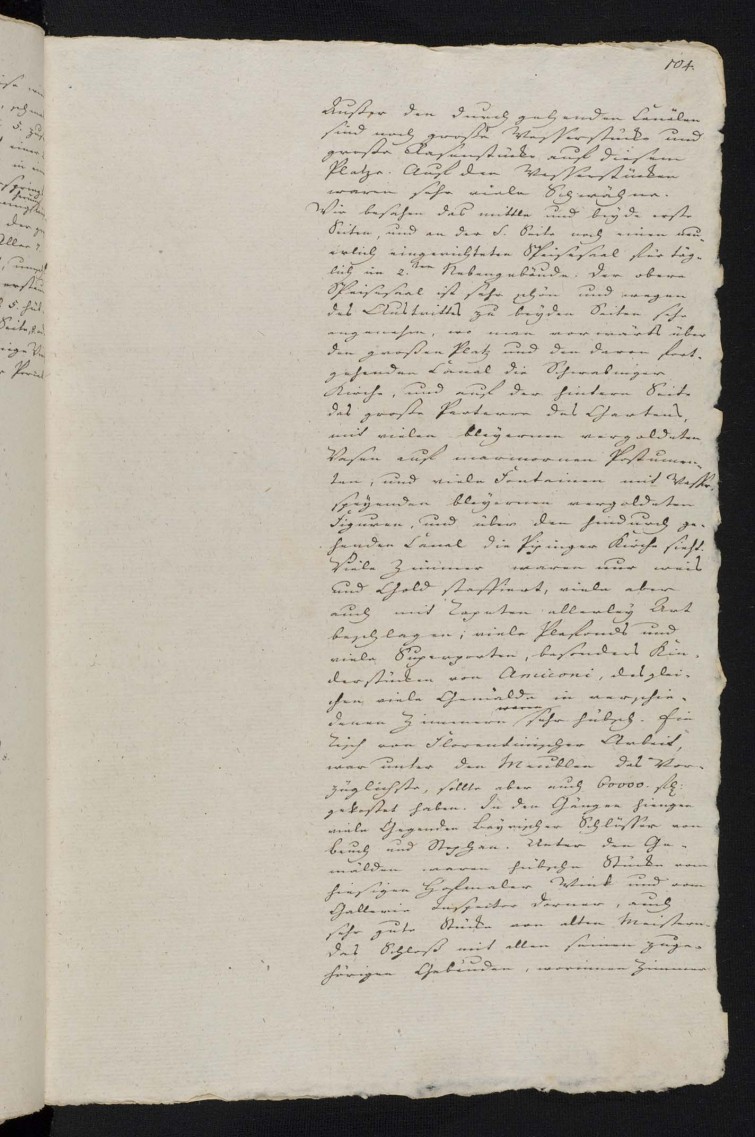 104.
Außer den durch gehenden Canälen
sind noch große Wasserstücke und
große Rasenstücke auf diesem
Platze. Auf den Wasserstücken
waren sehr viele Schwähne.
Wir besahen das mittle und beyde erste
Seiten, und an der S. Seite noch einen neu-
erlich eingerichteten Speisesaal für täg-
lich im 2.ten Nebengebäude. Der obere
Speisesaal ist sehr schön und wegen
des Austritts zu beyden Seiten sehr
angenehm, wo man vorwärts über
den großen Platz und den daran fort-
gehenden Canal die Schwabinger
Kirche, und auf der hintern Seite
das große Parterre des Gartens,
mit vielen bleyernen vergoldeten
Vasen auf marmornen Postumen-
ten, und viele Fontainen mit Wasser
speyenden bleyernen vergoldeten
Figuren, und über den hindurch ge-
henden Canal die Pipinger Kirche sieht.
Viele Zimmer waren nur weis
und Gold staffiert, viele aber
auch mit Tapeten allerley Art
beschlagen; viele Plafonds und
viele Superporten, besonders Kin-
derstücken von Amiconi, desglei-
chen viele Gemälde in verschie-
denen Zimmern waren sehr hübsch. Ein
Tisch von Florentinischer Arbeit,
war unter den Meublen das Vor-
züglichste, sollte aber auch 60000. fl.
gekostet haben. In den Gängen hiengen
viele Gegenden Bayrischer Schlösser von
Beuch und Stephan. Unter den Ge-
mälden waren hübsche Stücke vom
hiesigen Hofmaler Wink und vom
Gallerie Inspector Dorner, auch
sehr gute Stücke von alten Meistern.
Das Schloß mit allen seinen zuge-
hörigen Gebäuden, worinnen Zimmer